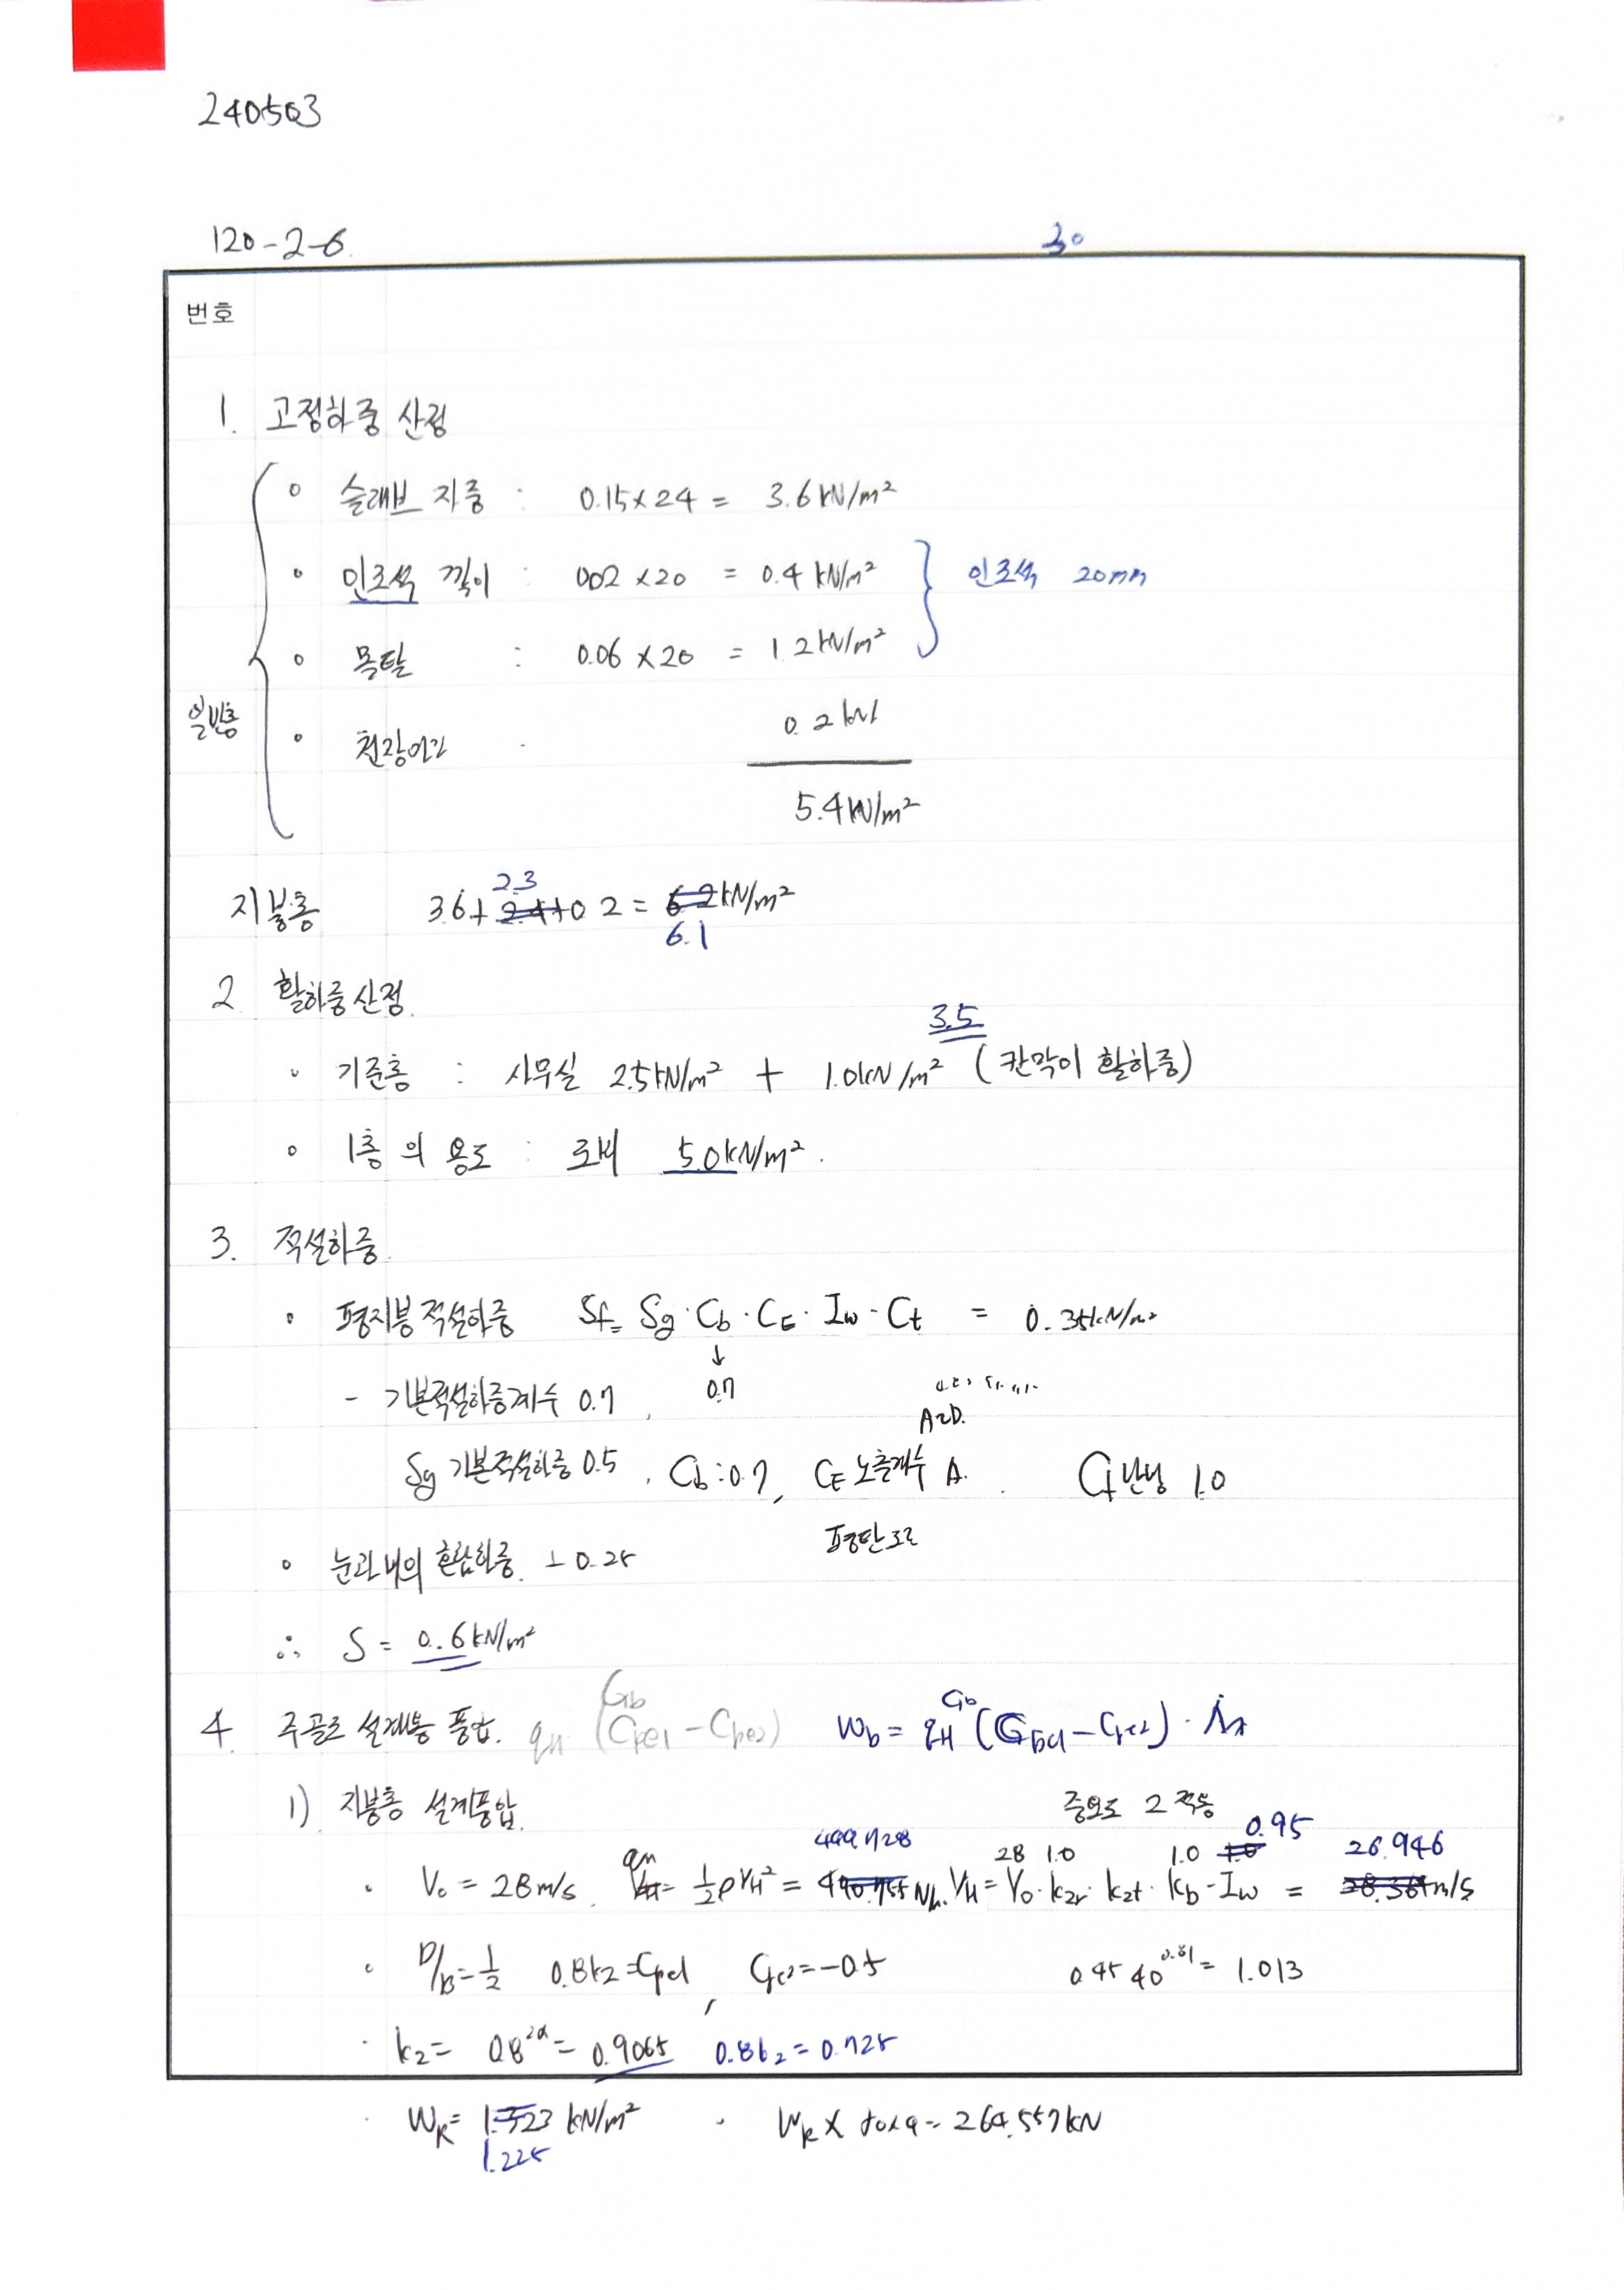 240503
120-2-6.
30
번호
1. 고정하중 산정
일반층
◦ 슬래브 자중 : 0.15×24 = 3.6kN/m²
◦ 인조석 깔이 : 002×20 = 0.4 kN/m²
인조석 20mm
◦ 몰탈 : 0.06×20 = 1.2kN/m²
◦ 0.2kN
5.4kN/m²
2.3
지붕층 3.6+2.4+0.2 = 6.2kN/m²
6.1
2 활하중산정.
3.5
◦ 기준층 : 사무실 2.5kN/m² + 1.0kN/m² (칸막이 활하중)
◦ 1층의 용도 : 로비 5.0kN/m².
3. 적설하중.
◦ 평지붕적설하중 Sf= Sg·Cb·CE·Iw·Ct = 0.35kN/m²
↓
- 기본적설하중계수 0.7, 0.7
Sg 기본적설하중 0.5, Cb:0.7, CE 노출계수 A. Ct 난방 1.0
◦ 눈과 비의 혼합하중. + 0.25
∴ S = 0.6kN/m²
4. 주골조 설계용 풍압. qH Gb (Cpe1 - Cpe2) Wb = qH Gb (Gpe1 - Cpe2) ·
1) 지붕층 설계풍압.
중요도 2 적용
499.728 28 1.0 1.0 1.0 0.95 26.946
· V₀ = 28m/s. qH = ½ρVH² = VH = V₀·kzr·kzt·kD·Iw = 28.364m/s
· D/B = 1/2 0.8kz=Cpe1, Cpe2=-0.5 0.45 40^0.81 = 1.013
· kz = 0.8^2α = 0.9065 0.8kz = 0.725
· WR = 1.323 kN/m² · WR × = 264.557kN
1.225